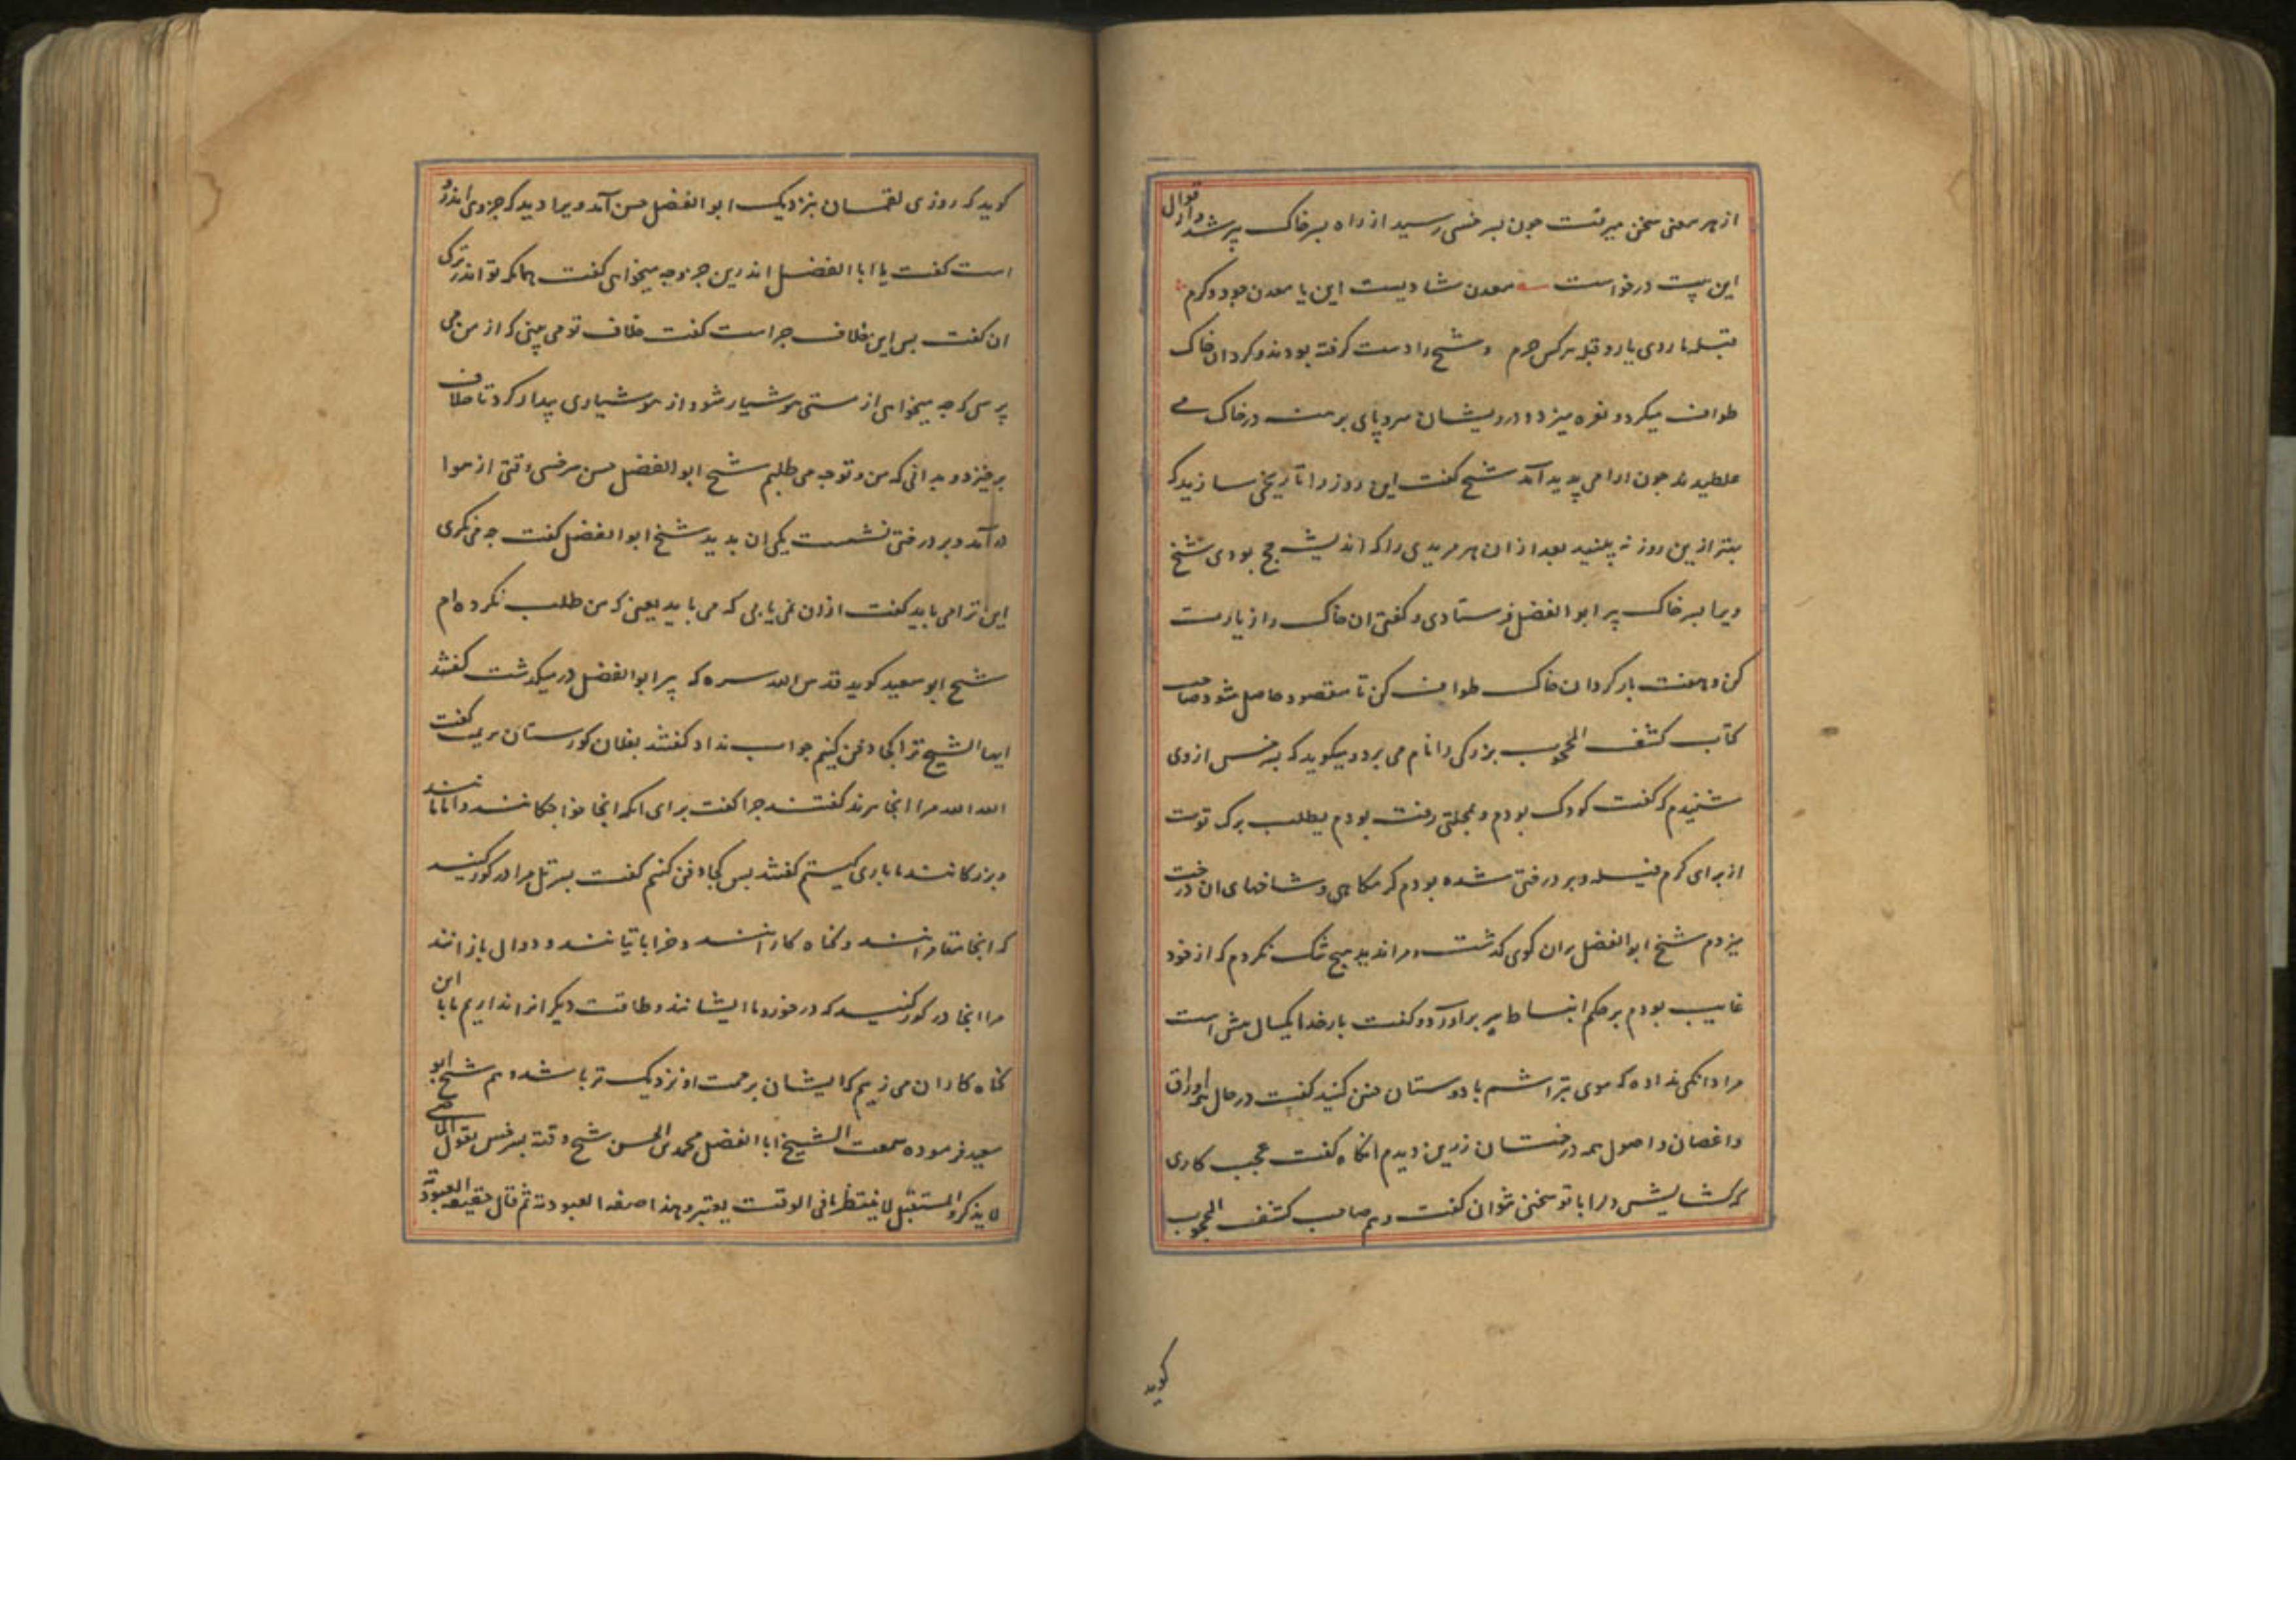 از هر معنی سخن میرفت جون بسرخسی رسید از راه بسر خاک پیر شد و از قوال
این بیت درخواست معدن شادیست این یا معدن جود و کرم
قبله ما روی یار و قبله هر کس حرم و شیخ را دست کرفته بودند و کرد ان خاک
طواف میکرد و نعره میزد و درویشان سر و پای برهنه در خاک می
غلطیدند جون ارامی پدید آمد شیخ کفت این روز را تاریخی سازید که
بهتر ازین روز نه بینید بعد از ان هر مریدی را که اندیشه حج بودی شیخ
ویرا بسر خاک پیر ابو الفضل فرستادی و کفتی ان خاک را زیارت
کن و هفت بار کرد ان خاک طواف کن تا مقصود حاصل شود صاحب
کتاب کشف المحجوب بزرکی را نام می برد و میکوید که بسرخس از وی
شنیدم که کفت کودک بودم و بمحلتی رفته بودم بطلب برک توت
از برای کرم فیله و بر درختی شده بودم کرمکاهی و شاخهای ان درخت
میزدم شیخ ابو الفضل بران کوی کذشت و مرا ندید هیچ شک نکردم که از خود
غایب بودم بر حکم انبساط سر برآورد و کفت بار خدایا یکسال بیش است
مرا دانکی نداده که موی بتراشم با دوستان جنین کنید کفت در حال همه اوراق
و اغصان و اصول همه درختان زرین دیدم انکاه کفت عجب کاری
که کشایش دل را با تو سخنی نتوان کفت و هم صاحب کشف المحجوب
کوید
کوید که روزی لقمان بنزدیک ابو الفضل حسن آمد ویرا دید که جزوی اندر
است کفت یا ابا الفضل اندرین جزو جه میخواهی کفت همانکه تو اندر ترک
ان کفت پس این خلاف جراست کفت خلاف تو می بینی که از من می
پرسی که جه میخواهی از مستی هوشیار شو و از هوشیاری بیدار کرد تا خلاف
برخیزد و بدانی که من و تو جه می طلبم شیخ ابو الفضل حسن سرخسی وقتی از هوا
در آمد و بر درختی نشست یکی ان بدید شیخ ابو الفضل کفت جه می نکری
این ترا می باید کفت از ان نمی یابی که می باید یعنی که من طلب نکرده ام
شیخ ابو سعید کوید قدس الله سره که پیر ابو الفضل در میکذشت کفتند
ایها الشیخ ترا کجا دفن کنیم جواب نداد کفتند بفلان کورستان بریمت کفت
الله الله مرا انجا مبرند کفتند جرا کفت برای انکه انجا خواجکانند و امامانند
و بزرکانند ما باری کیستیم کفتند پس کجا دفن کنیم کفت بسر تل مرا در کور کنید
که انجا مقامرانند و کناه کارانند و خراباتیانند و دوال بازانند
مرا انجا در کور کنید که در خورد ما ایشانند و طاقت دیکرانرا نداریم ما با این
کناه کاران می زییم که ایشان برحمت او نزدیک تر باشند و هم شیخ ابو
سعید فرموده سمعت الشیخ ابا الفضل محمد بن الحسن شیخ وقته بسرخس یقول الماضی
لا یذکر و المستقبل لا ینتظر ما فی الوقت یعتبر و هذا صفة العبودیة ثم قال حقیقة العبودیة